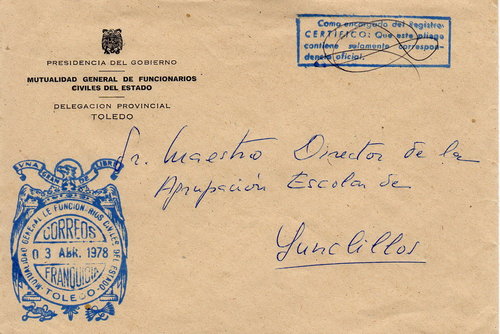 PRESIDENCIA DEL GOBIERNO
MUTUALIDAD GENERAL DE FUNCIONARIOS
CIVILES DEL ESTADO
DELEGACION PROVINCIAL
TOLEDO
Como encargado del Registro
CERTIFICO: Que este pliego
contiene solamente correspon-
dencia oficial.
Sr. Maestro Director de la
Agrupación Escolar de
Yunclillos
UNA GRANDE LIBRE
MUTUALIDAD GENERAL DE FUNCIONARIOS CIVILES DEL ESTADO
CORREOS
03 ABR. 1978
FRANQUICIA
TOLEDO